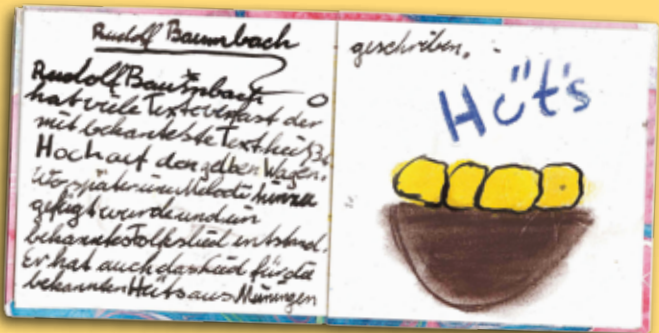 Rudolf Baumbach
Rudolf Baumbach
hat viele Texte verfast der
mit bekanteste Text heißt
Hoch auf den gelben Wagen.
Wo später eine Melodie hinzu
gefügt wurde und ein
bekanntes Volkslied entstand.
Er hat auch das Lied für die
bekannten Hüts aus Meiningen
geschriben.
Hüt's